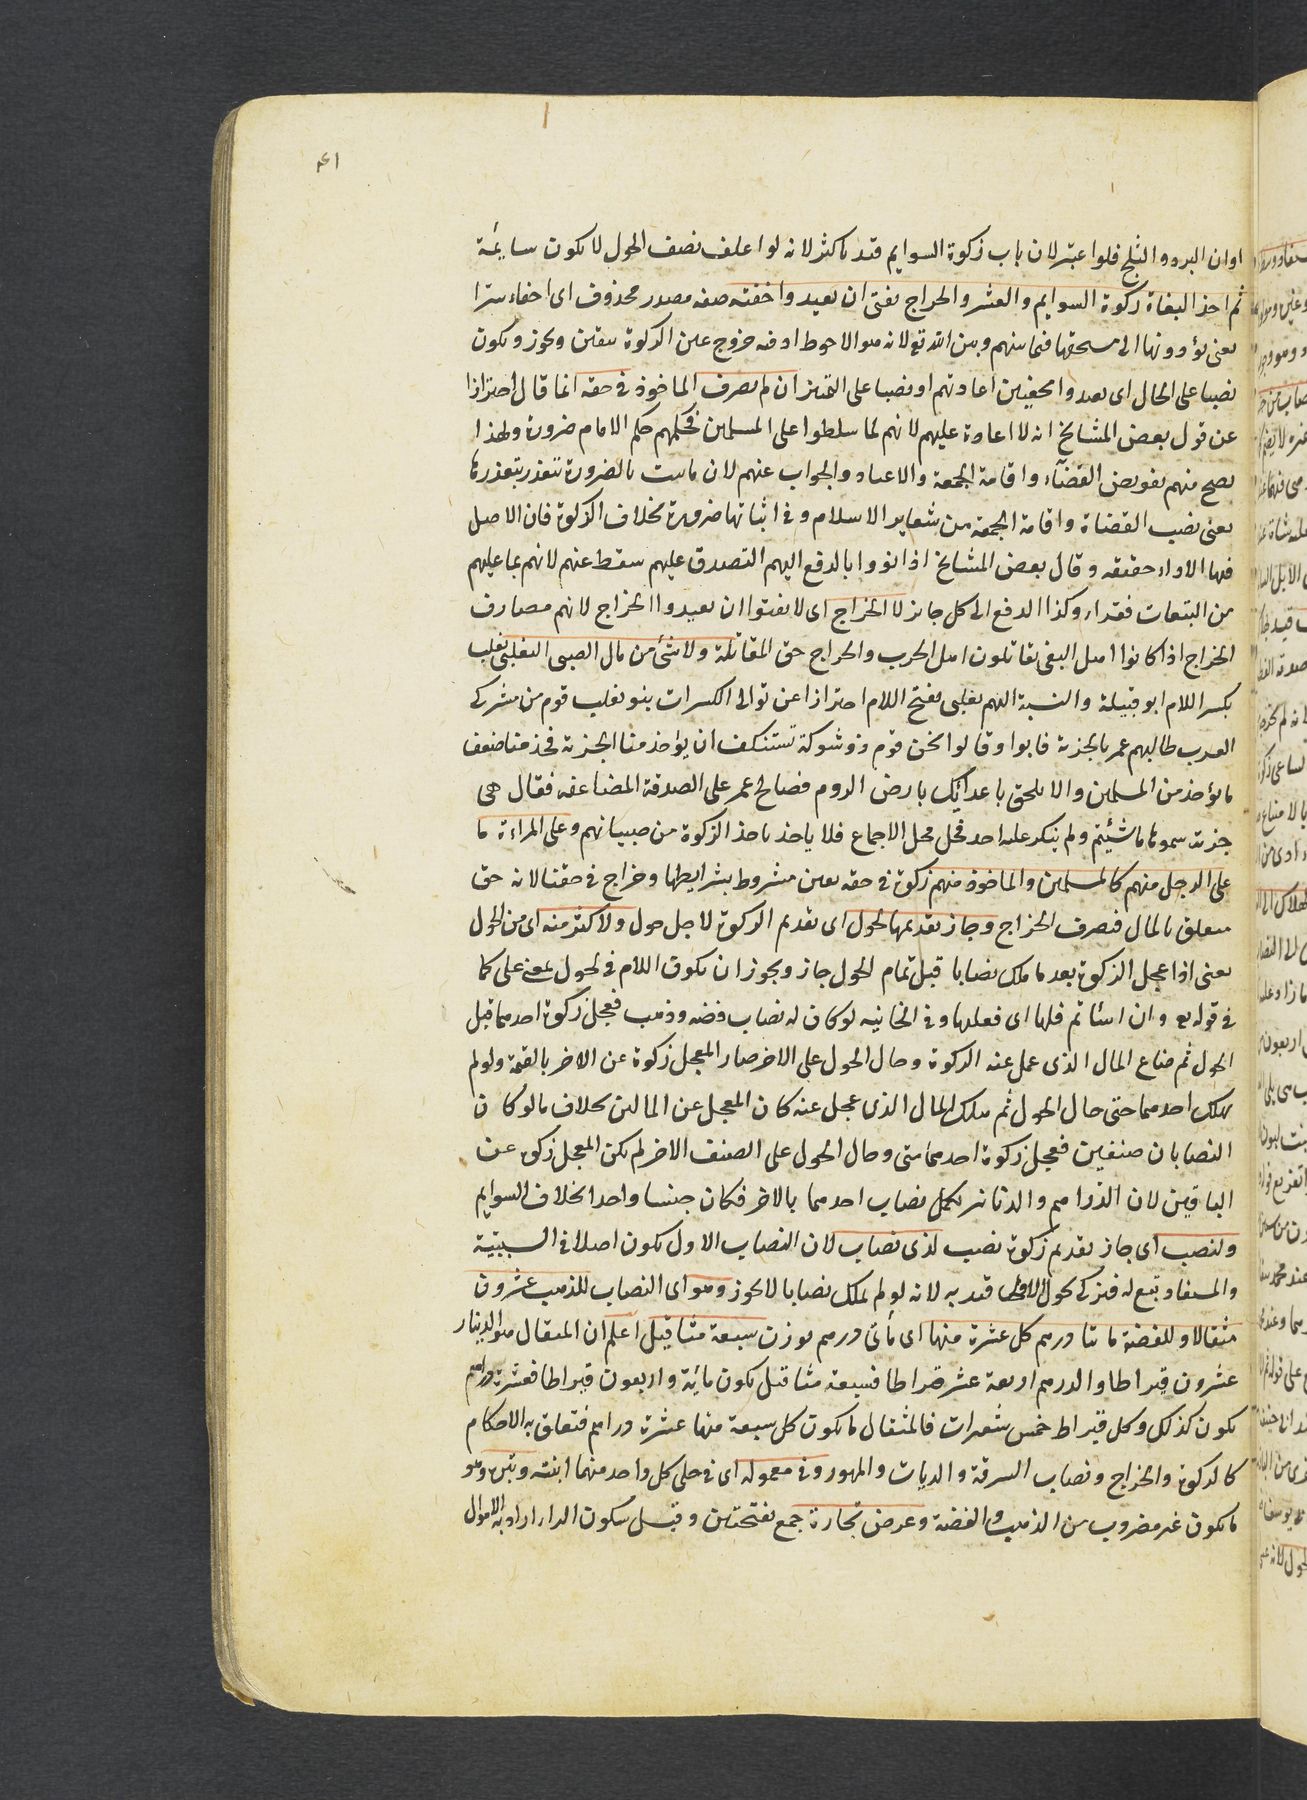 ٤١
اوان البرد والثلج فلو اعتبر لان باب زكوة السوايم قيد باكثر لانه لو اعلف نصف الحول لا يكون سايمة
ثم اخذ البغاة زكوة السوايم والعشر والخراج يفتى ان يعيدوا خفته صفة مصدر محذوف اى اخفاء سترا
يعنى يؤدونها الى مستحقها فيما بينهم وبين الله تع لانه هو الاحوط اذ فيه خروج عن الزكوة بيقين ويجوز ويكون
نصبا على الحال اى يعيدوا مخفين اعادتهم او نصبا على التميز ان لم يصرف الماخوذ فى حقه انما قال احترازا
عن قول بعض المشايخ انه لا اعادة عليهم لانهم لما سلطوا على المسلمين فحكمهم حكم الامام ضرورة ولهذا
يصح منهم تفويض القضآء واقامة الجمعة والاعياد والجواب عنهم لان ما ثبت بالضرورة تتعذر بتعذرها
يعنى نصب القضاة واقامة الجمعة من شعاير الاسلام وفى اثباتها ضرورة بخلاف الزكوة فان الاصل
فيها الاداء حقيقة وقال بعض المشايخ اذا نووا بالدفع اليهم التصدق عليهم سقط عنهم لانهم بما عليهم
من التبعات فقراء وكذا الدفع الى كل جائر لا الخراج اى لا يفتوا ان يعيدوا الخراج لانهم مصارف
الخراج اذا كانوا اهل البغى يقاتلون اهل الحرب والخراج حق المقاتلة ولا شئ من مال الصبى التغلبى تغلب
بكسر اللام ابو قبيلة والنسبة اليهم تغلبى بفتح اللام احترازا عن توالى الكسرات بنو تغلب قوم من مشركى
العرب طالبهم عمر بالجزية فابوا وقالوا نحن قوم ذو شوكة نستنكف ان يؤاخذ منا الجزية فخذ منا ضعف
ما يؤخذ من المسلمين والا يلحق باعدائك بارض الروم فصالح عمر على الصدقة المضاعفة فقال هى
جزية سموها ما شئتم ولم ينكر عليه احد فحل محل الاجماع فلا ياخذ ناخذ الزكوة من صبيانهم وعلى المراءة ما
على الرجل منهم كالمسلمين والماخوذ منهم زكوة فى حقه يعين مشروط بشرايطها وخراج فى حقنا لانه حق
متعلق بالمال فصرف الخراج وجاز تقديمها لحول اى تقديم الزكوة لاجل حول ولاكثر منه اى من الحول
يعنى اذا عجل الزكوة بعد ما ملك نصابا قبل تمام الحول جاز ويجوز ان يكون اللام فى لحول بمعنى على كما
فى قوله تع وان اساتم فلها اى فعليها وفى الخانيه لو كان له نصاب فضه وذهب فعجل زكوة احدهما قبل
الحول ثم ضاع المال الذى عمل عنه الزكوة وحال الحول على الاخر صار المعجل زكوة عن الاخر بالقيمة ولو لم
يهلك احدهما حتى حال الحول ثم هلك المال الذى عجل عنه كان المعجل عن المالين بخلاف مالو كان
النصابان صنفين فعجل زكوة احدهما متى وحال الحول على الصنف الاخر لم يكن المعجل زكوة عن
الباقين لان الدراهم والدنانر يكمل نصاب احدهما بالاخر فكان جنسا واحدا بخلاف السوايم
ولنصب اى جاز تقديم زكوة نصب لذى نصاب لان النصاب الاول يكون اصلا فى السببية
والمستفاد تبع له فيزكى بحول الاصل قيد به لانه لو لم يملك نصابا لا يجوز وهو اى النصاب للذهب عشرون
مثقالا وللفضة مائتا درهم كل عشرة منها اى مأتى درهم بوزن سبعة مثاقيل اعلم ان المثقال هو الدينار
عشرون قيراطا والدرهم اربعة عشر قيراطا فسبعة مثاقيل يكون مائة واربعون قيراطا فعشرة دراهم
يكون كذلك وكل قيراط خمس شعيرات فالمثقال ما يكون كل سبعة منها عشرة دراهم فتعلق به الاحكام
كالزكوة والخراج ونصاب السرقة والديات والمهور وفى معموله اى فى حلى كل واحد منهما انيته وتبره وهو
ما يكون غير مضروب من الذهب والفضة وعرض تجارة جمع بفتحتين وقيل بسكون الراء اراد به الاموال